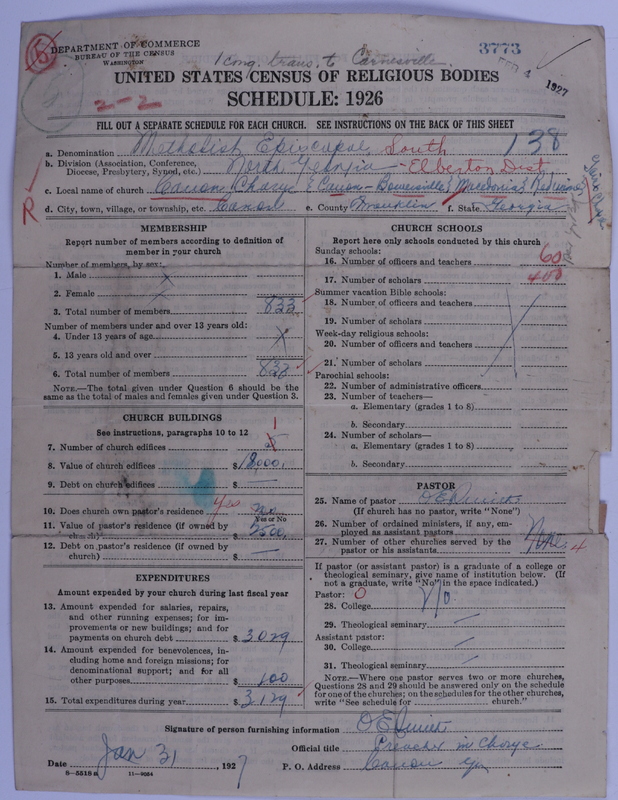 DEPARTMENT OF COMMERCE
BUREAU OF THE CENSUS
WASHINGTON
3773
FEB 4 1927
1 cong. trans. to Carnesville
UNITED STATES CENSUS OF RELIGIOUS BODIES
SCHEDULE: 1926
2-2
FILL OUT A SEPARATE SCHEDULE FOR EACH CHURCH. SEE INSTRUCTIONS ON THE BACK OF THIS SHEET
138
a. Denomination Methodist Episcopal South
b. Division (Association, Conference, Diocese, Presbytery, Synod, etc.) North Georgia - Elberton Dist
c. Local name of church Canon Charge Canon - Bowersville Macedonia
d. City, town, village, or township, etc. Canon e. County Franklin f. State Georgia
R
MEMBERSHIP
Report number of members according to definition of
member in your church
Number of members, by sex:
1. Male
2. Female
3. Total number of members 833
Number of members under and over 13 years old:
4. Under 13 years of age x
5. 13 years old and over
6. Total number of members 833
NOTE.—The total given under Question 6 should be
the same as the total of males and females given under Question 3.
CHURCH BUILDINGS
See instructions, paragraphs 10 to 12
7. Number of church edifices
8. Value of church edifices $18000.
9. Debt on church edifices $ —
10. Does church own pastor's residence yes no
Yes or No
11. Value of pastor's residence (if owned by
church) $2500.
12. Debt on pastor's residence (if owned by
church) $ —
EXPENDITURES
Amount expended by your church during last fiscal year
13. Amount expended for salaries, repairs,
and other running expenses; for im-
provements or new buildings; and for
payments on church debt $3029
14. Amount expended for benevolences, in-
cluding home and foreign missions; for
denominational support; and for all
other purposes $100
15. Total expenditures during year $3129
CHURCH SCHOOLS
Report here only schools conducted by this church
Sunday schools:
16. Number of officers and teachers 60
17. Number of scholars 400
Summer vacation Bible schools:
18. Number of officers and teachers
19. Number of scholars
Week-day religious schools:
20. Number of officers and teachers
21. Number of scholars
Parochial schools:
22. Number of administrative officers
23. Number of teachers—
a. Elementary (grades 1 to 8)
b. Secondary
24. Number of scholars—
a. Elementary (grades 1 to 8)
b. Secondary
PASTOR
25. Name of pastor
(If church has no pastor, write "None")
26. Number of ordained ministers, if any, em-
ployed as assistant pastors
27. Number of other churches served by the
pastor or his assistants None 4
If pastor (or assistant pastor) is a graduate of a college or
theological seminary, give name of institution below. (If
not a graduate, write "No" in the space indicated.)
Pastor: 0
28. College No
29. Theological seminary —
Assistant pastor:
30. College —
31. Theological seminary —
NOTE.—Where one pastor serves two or more churches,
Questions 28 and 29 should be answered only on the schedule
for one of the churches; on the schedules for the other churches,
write "See schedule for church."
Signature of person furnishing information
Official title Preacher in Charge
Date Jan 31, 1927 P. O. Address Canon Ga
8—5518 a 11—9064